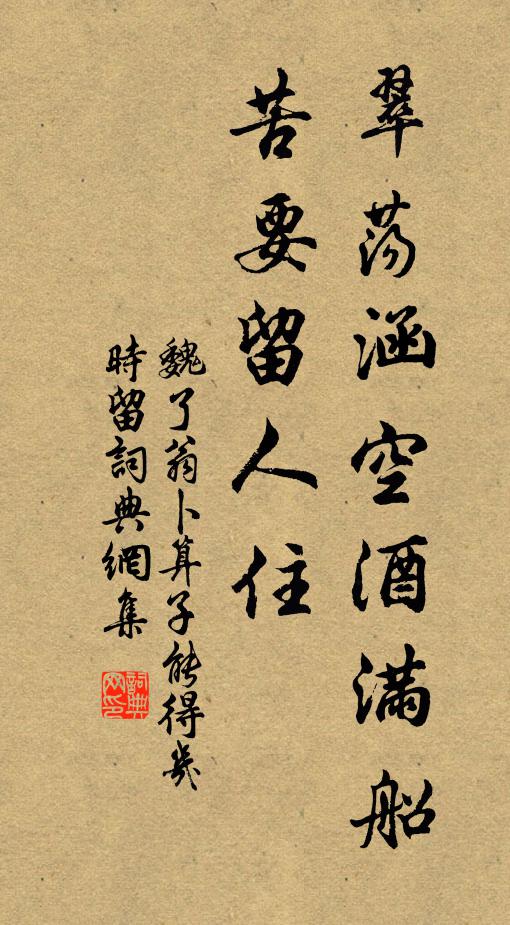 翠荡涵空酒满船
苦要留人住
魏了翁卜算子能得幾
時留詞典網集
詞典
网印